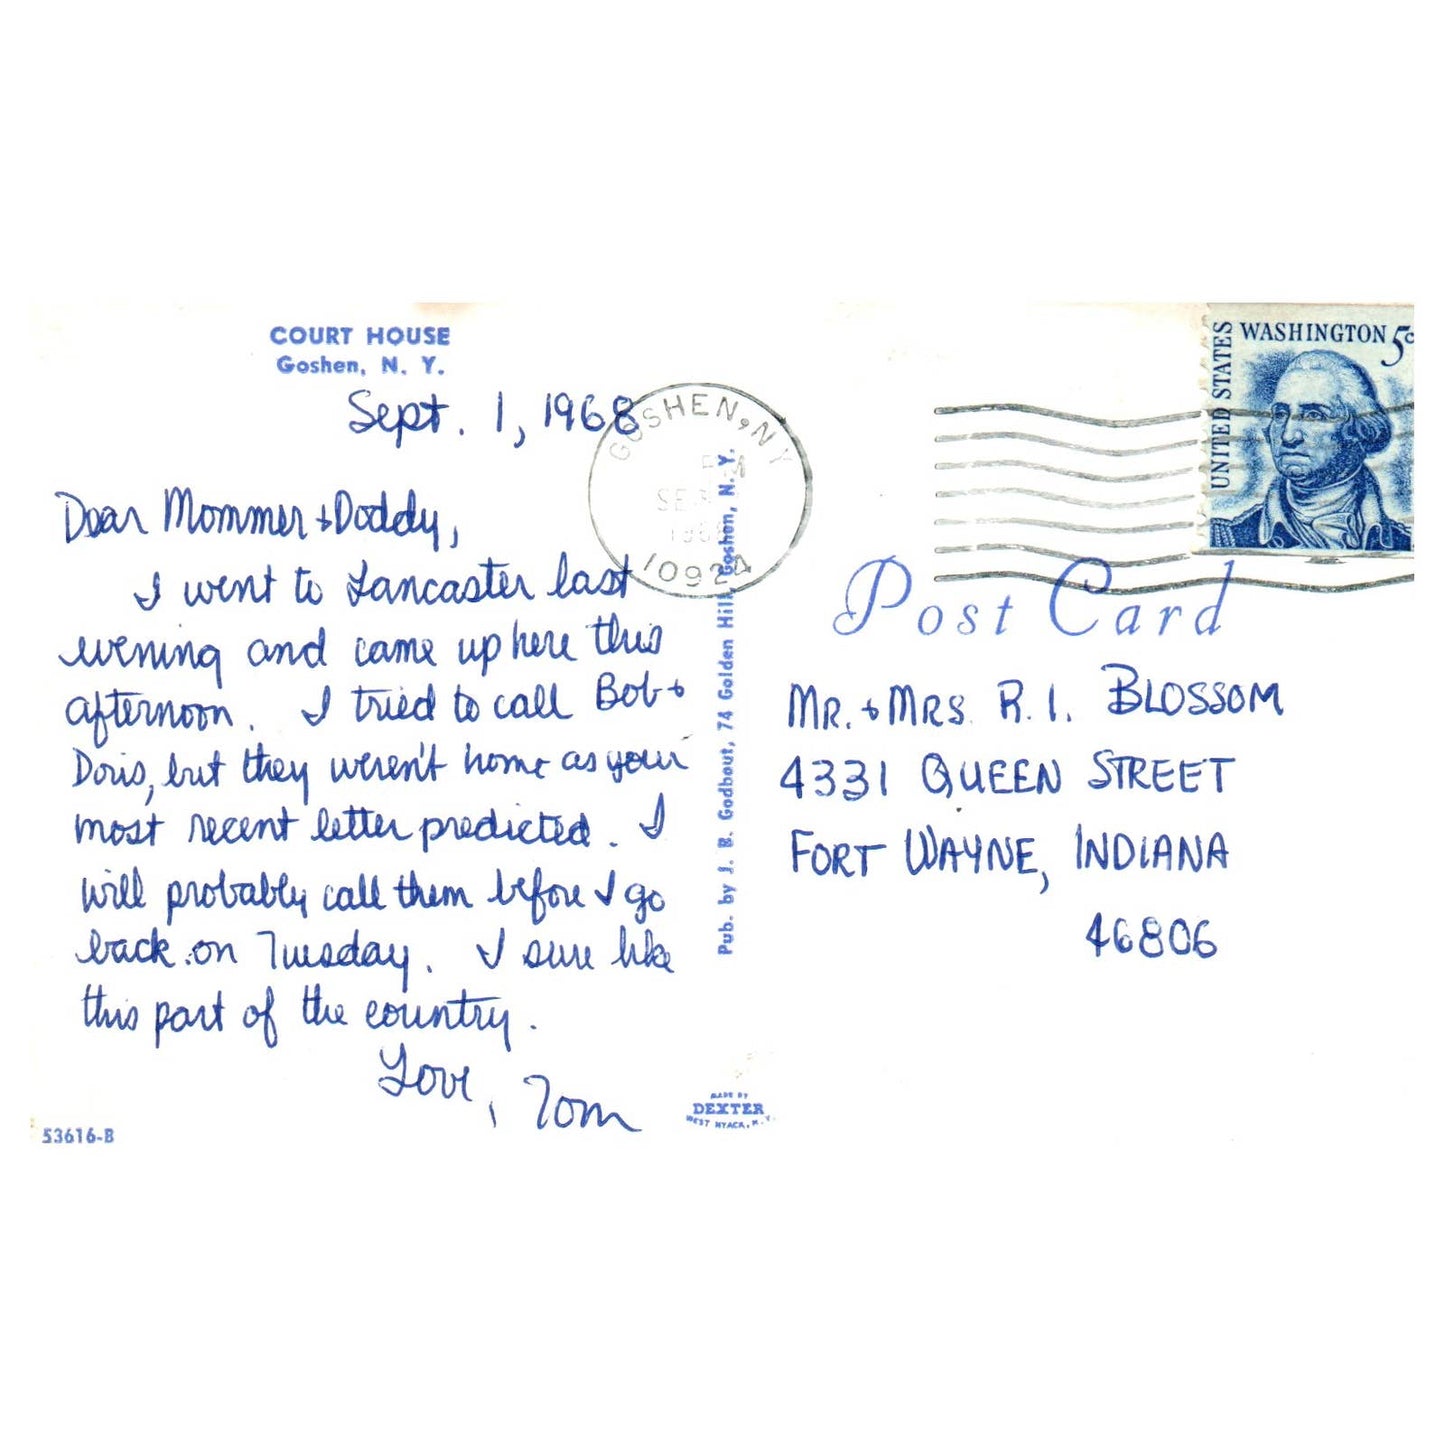 COURT HOUSE
Goshen, N. Y.
Sept. 1, 1968
Dear Mommer + Doddy,
I went to Lancaster last
evening and came up here this
afternoon. I tried to call Bob +
Doris, but they weren't home as your
most recent letter predicted. I
will probably call them before I go
back on Tuesday. I sure like
this part of the country.
Love, Tom
53616-B
MADE BY
DEXTER
WEST NYACK, N.Y.
Pub. by J. B. Godbout, 74 Golden Hill, Goshen, N. Y.
GOSHEN, NY
PM
SE
10924
UNITED STATES
WASHINGTON 5c
Post Card
MR. + MRS. R. I. BLOSSOM
4331 QUEEN STREET
FORT WAYNE, INDIANA
46806